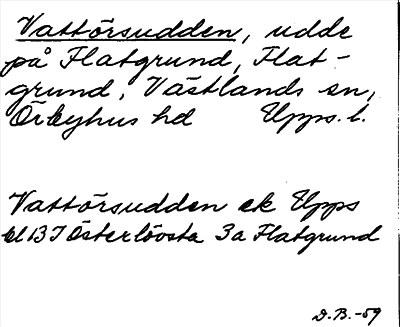 Vattörsudden, udde
på Flatgrund, Flat-
grund, Västlands sn,
Örbyhus hd Upps. l.
Vattörsudden ek Upps
bl 13 I Österlövsta 3a Flatgrund
D.B.-59